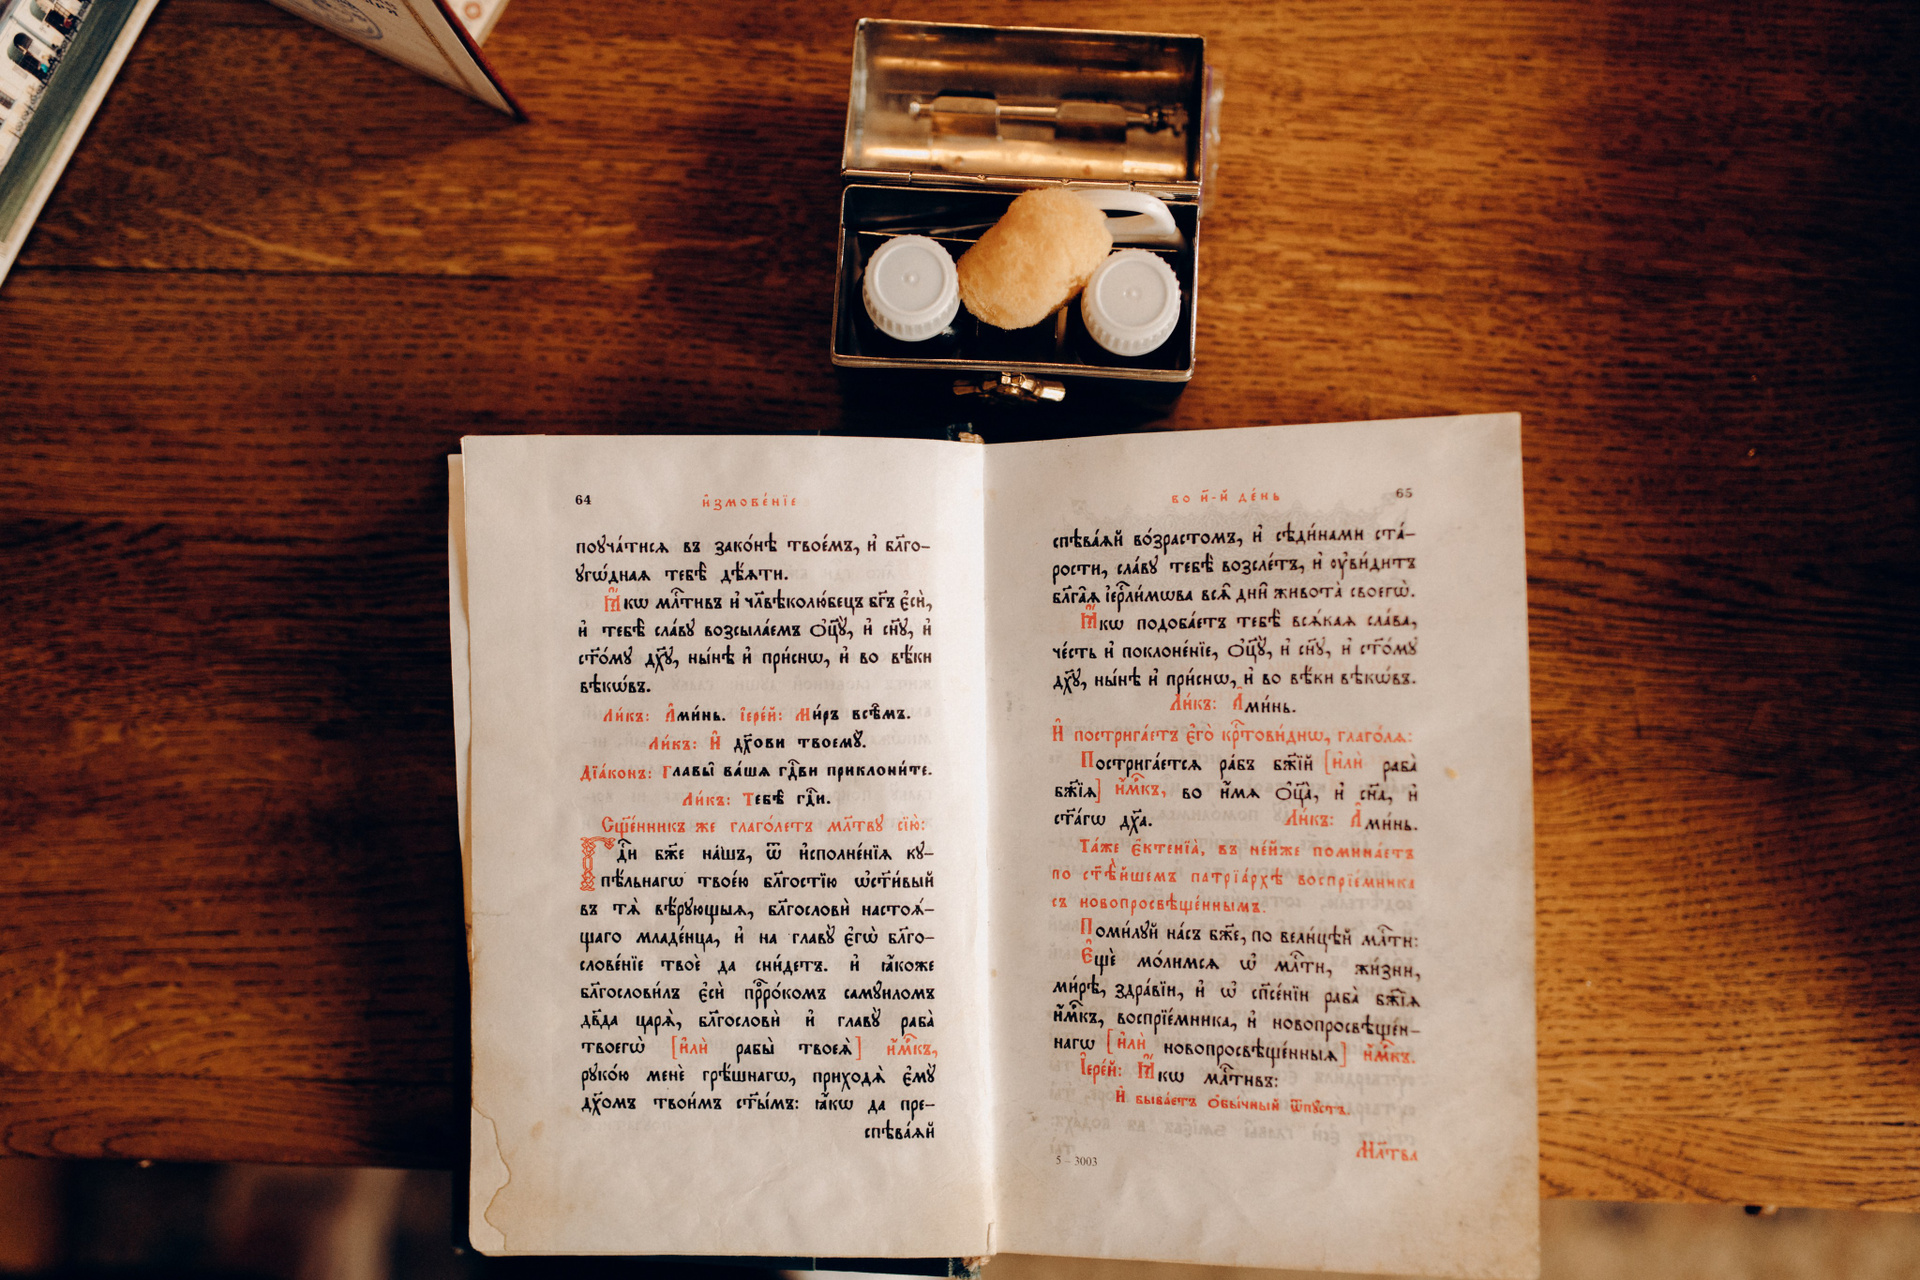 64
и҆змове́нїе
поꙋча́тисѧ въ зако́нѣ твое́мъ, и҆ бл҃го-
ꙋгѡ́днаѧ тебѣ̀ дѣ́ѧти.
Ꙗ҆́кѡ млⷭ҇тивъ и҆ чл҃вѣколю́бецъ бг҃ъ є҆сѝ,
и҆ тебѣ̀ сла́вꙋ возсыла́емъ ѻ҆ц҃ꙋ̀, и҆ сн҃ꙋ, и҆
ст҃о́мꙋ дх҃ꙋ, ны́нѣ и҆ при́снѡ, и҆ во вѣ́ки
вѣкѡ́въ.
Ли́къ: А҆ми́нь. І҆ере́й: Ми́ръ всѣ̑мъ.
Ли́къ: И҆ дх҃ови твоемꙋ̀.
Дїа́конъ: Главы̑ ва́шѧ гдⷭ҇ви приклони́те.
Ли́къ: Тебѣ̀ гдⷭ҇и.
Сщ҃е́нникъ же глаго́летъ мл҃твꙋ сїю̀:
Гдⷭ҇и бж҃е на́шъ, ѿ и҆сполне́нїѧ кꙋ-
пѣ́льнагѡ твое́ю бл҃гостїю ѡ҆ст҃и́вый
въ тѧ̀ вѣ́рꙋющыѧ, бл҃гословѝ настоѧ́-
щаго младе́нца, и҆ на главꙋ̀ є҆гѡ̀ бл҃го-
слове́нїе твоѐ да сни́детъ. и҆ ꙗ҆́коже
бл҃гослови́лъ є҆сѝ прⷪ҇ро́комъ самꙋи́ломъ
дв҃да царѧ̀, бл҃гословѝ и҆ главꙋ̀ раба̀
твоегѡ̀ [и҆лѝ рабы̀ твоеѧ̀] и҆́мⷬ҇къ,
рꙋко́ю менѐ грѣ́шнагѡ, приходѧ̀ є҆мꙋ̀
дх҃омъ твои́мъ ст҃ы́мъ: ꙗ҆́кѡ да пре-
спѣва́ѧй
во и҃-й де́нь
65
спѣва́ѧй во́зрастомъ, и҆ сѣди́нами ста́-
рости, сла́вꙋ тебѣ̀ возсле́тъ, и҆ ᲂу҆ви́дитъ
бл҃га̑ѧ і҆ерⷭ҇ли́мѡва всѧ̑ дни̑ живота̀ своегѡ̀.
Ꙗ҆́кѡ подоба́етъ тебѣ̀ всѧ́каѧ сла́ва,
че́сть и҆ поклоне́нїе, ѻ҆ц҃ꙋ̀, и҆ сн҃ꙋ, и҆ ст҃о́мꙋ
дх҃ꙋ, ны́нѣ и҆ при́снѡ, и҆ во вѣ́ки вѣкѡ́въ.
Ли́къ: А҆ми́нь.
И҆ пострига́етъ є҆го̀ крⷭ҇тови́днѡ, глаго́лѧ:
Пострига́етсѧ ра́бъ бж҃їй [и҆лѝ раба̀
бж҃їѧ] и҆́мⷬ҇къ, во и҆́мѧ ѻ҆ц҃а̀, и҆ сн҃а, и҆
ст҃а́гѡ дх҃а. Ли́къ: А҆ми́нь.
Та́же є҆ктенїа̀, въ не́йже помина́етъ
по ст҃ѣ́йшемъ патрїа́рхѣ воспрїе́мника
съ новопросвѣще́ннымъ.
Поми́лꙋй на́съ бж҃е, по вели́цѣй млⷭ҇ти:
Є҆щѐ мо́лимсѧ ѡ҆ млⷭ҇ти, жи́зни,
ми́рѣ, здра́вїи, и҆ ѡ҆ спⷭ҇е́нїи раба̀ бж҃їѧ
и҆́мⷬ҇къ, воспрїе́мника, и҆ новопросвѣще́н-
нагѡ [и҆лѝ новопросвѣще́нныѧ] и҆́мⷬ҇къ.
І҆ере́й: Ꙗ҆́кѡ млⷭ҇тивъ:
И҆ быва́етъ ѻ҆бы́чный ѿпꙋ́стъ.
5 – 3003
Мл҃тва